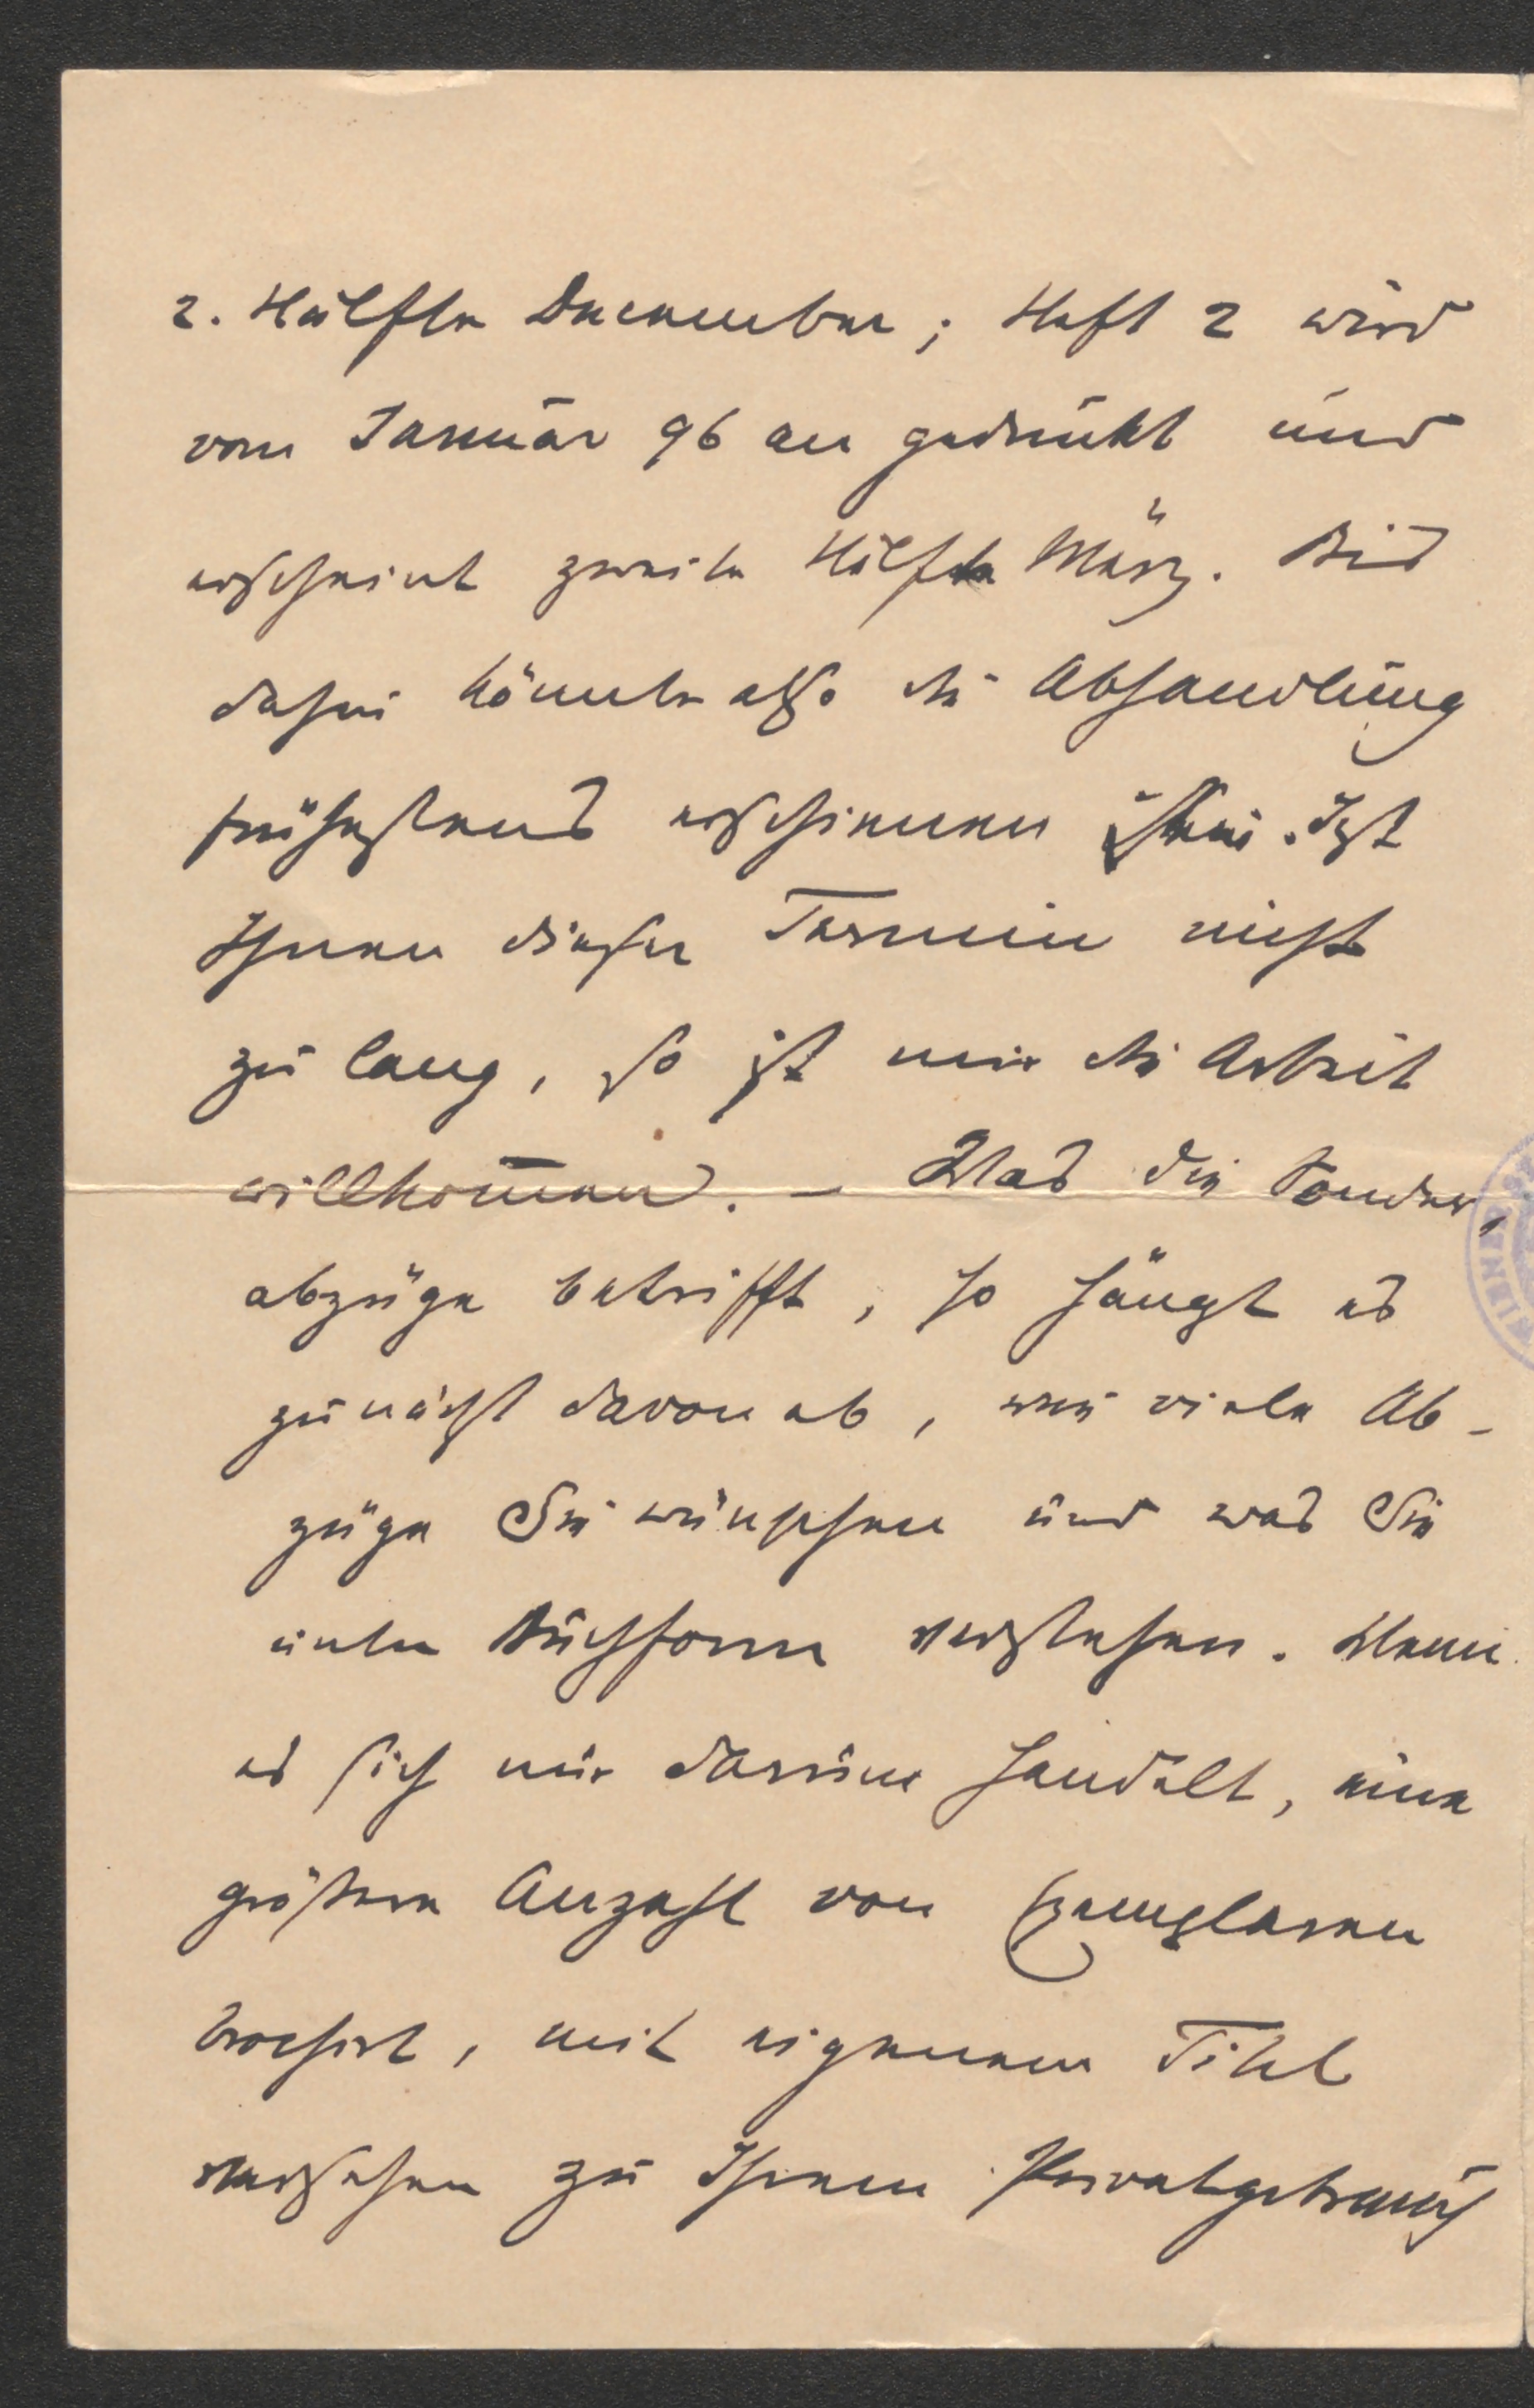 2. Hälfte December; Heft 2 wird
vom Januar 96 an gedruckt und
erscheint zweite Hälfte März. Bis
dahin könnte also die Abhandlung
frühestens erschienen sein. Ist
Ihnen dieser Termin nicht
zu lang, so ist mir die Arbeit
willkom̄en. – Was die Sonder,
abzüge betrifft, so hängt es
zunächst davon ab, wie viele Ab-
züge Sie wünschen und was Sie
unter Buchform verstehen. Wenn
es sich nur darum handelt, eine
größere Anzahl von Exemplaren
brochirt, mit eigenem Titel
versehen zu Ihrem Privatgebrauch